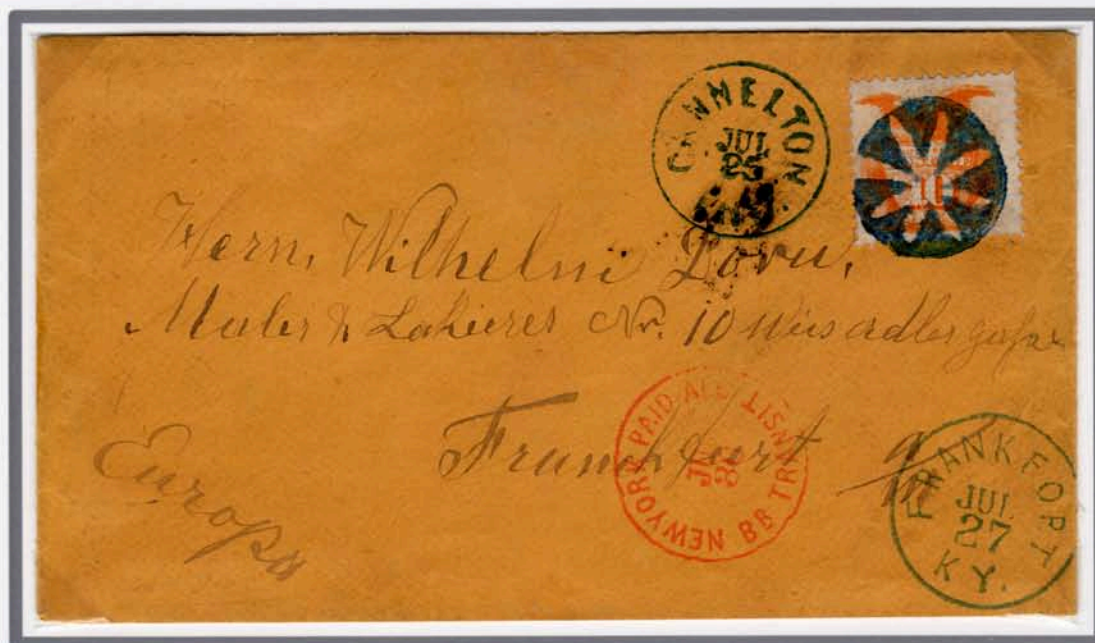 CANNELTON
JUL
25
IND.
10
Herrn. Wilhelm
Maler & Lakierer Nr. 10 Weisadlergasse
Frankfurt a/m
Europa
NEW YORK PAID ALL BR TRANSIT
JUL
FRANKFORT
JUL
27
KY.